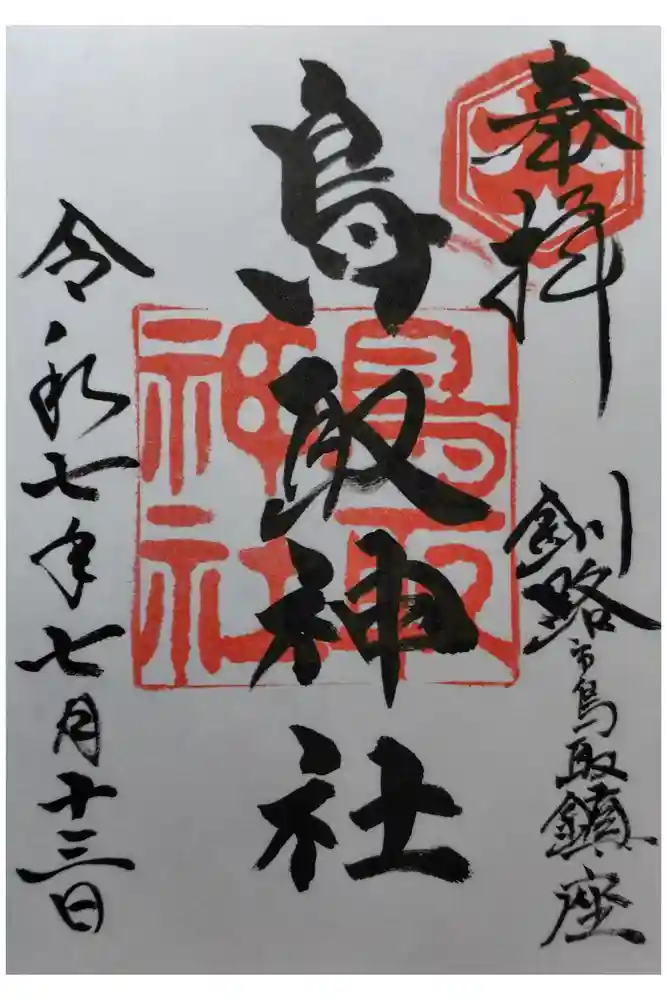 奉拝
釧路市鳥取鎮座
鳥取神社
鳥取
神社
令和七年七月十三日